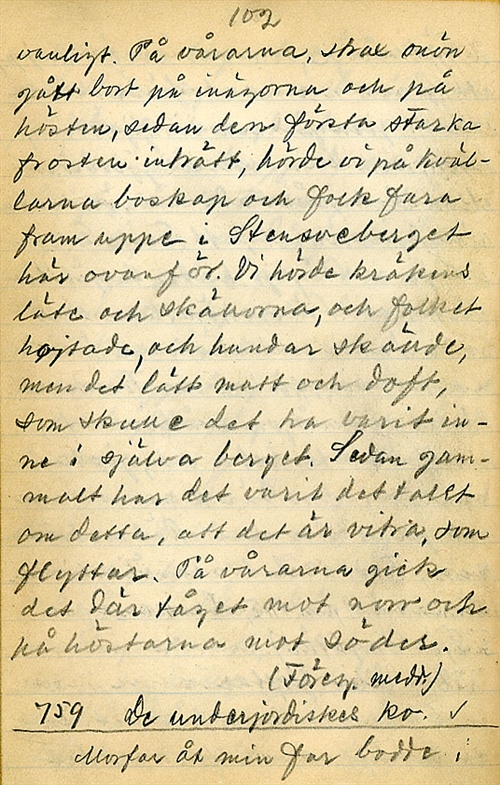 102
vanligt. På vårarna, strax snön
gått bort på inägorna och på
hösten, sedan den första starka
frosten inträtt, hörde vi på kväl-
larna boskap och folk fara
fram uppe i Stensoeberget
här ovanför. Vi hörde kräkens
läte och skällorna, och folket
hojtade, och hundar skällde,
men det lätt matt och doft,
som skulle det ha varit in-
ne i själva berget. Sedan gam-
malt har det varit det talet
om detta, att det är vitra, som
flyttar. På vårarna gick
det där tåget mot norr och
på höstarna mot söder.
(Föreg. medd.)
759 De underjordiskes ko. √
Morfar åt min far bodde i